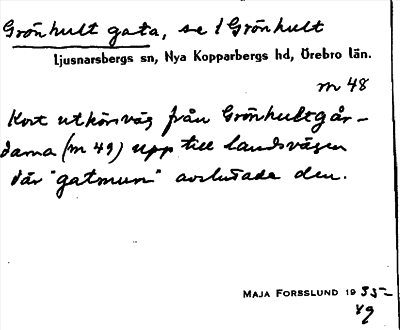 Grönhult gata, se 1 Grönhult
Ljusnarsbergs sn, Nya Kopparbergs hd, Örebro län.
m 48
Kort utkörsväg från Grönhultgår-
darna (m 49) upp till landsvägen
där "gatmun" avslutade den.
MAJA FORSSLUND 1935-
49